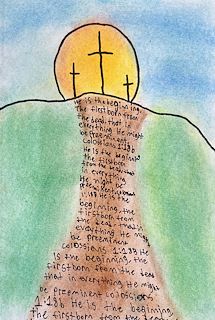 He is the beginning,
the firstborn from
the dead, that in
everything He might
be preeminent
Colossians 1:18b
He is the beginning
the firstborn
from the dead, that
in everything
He might be
preeminent
1:18b He is the
beginning, the
firstborn from
the dead, that in
everything He might
be preeminent
Colossians 1:18b He
is the beginning, the
firstborn from the dead
that in everything He might
be preeminent Colossians
1:18b He is the beginning,
the firstborn from the dead